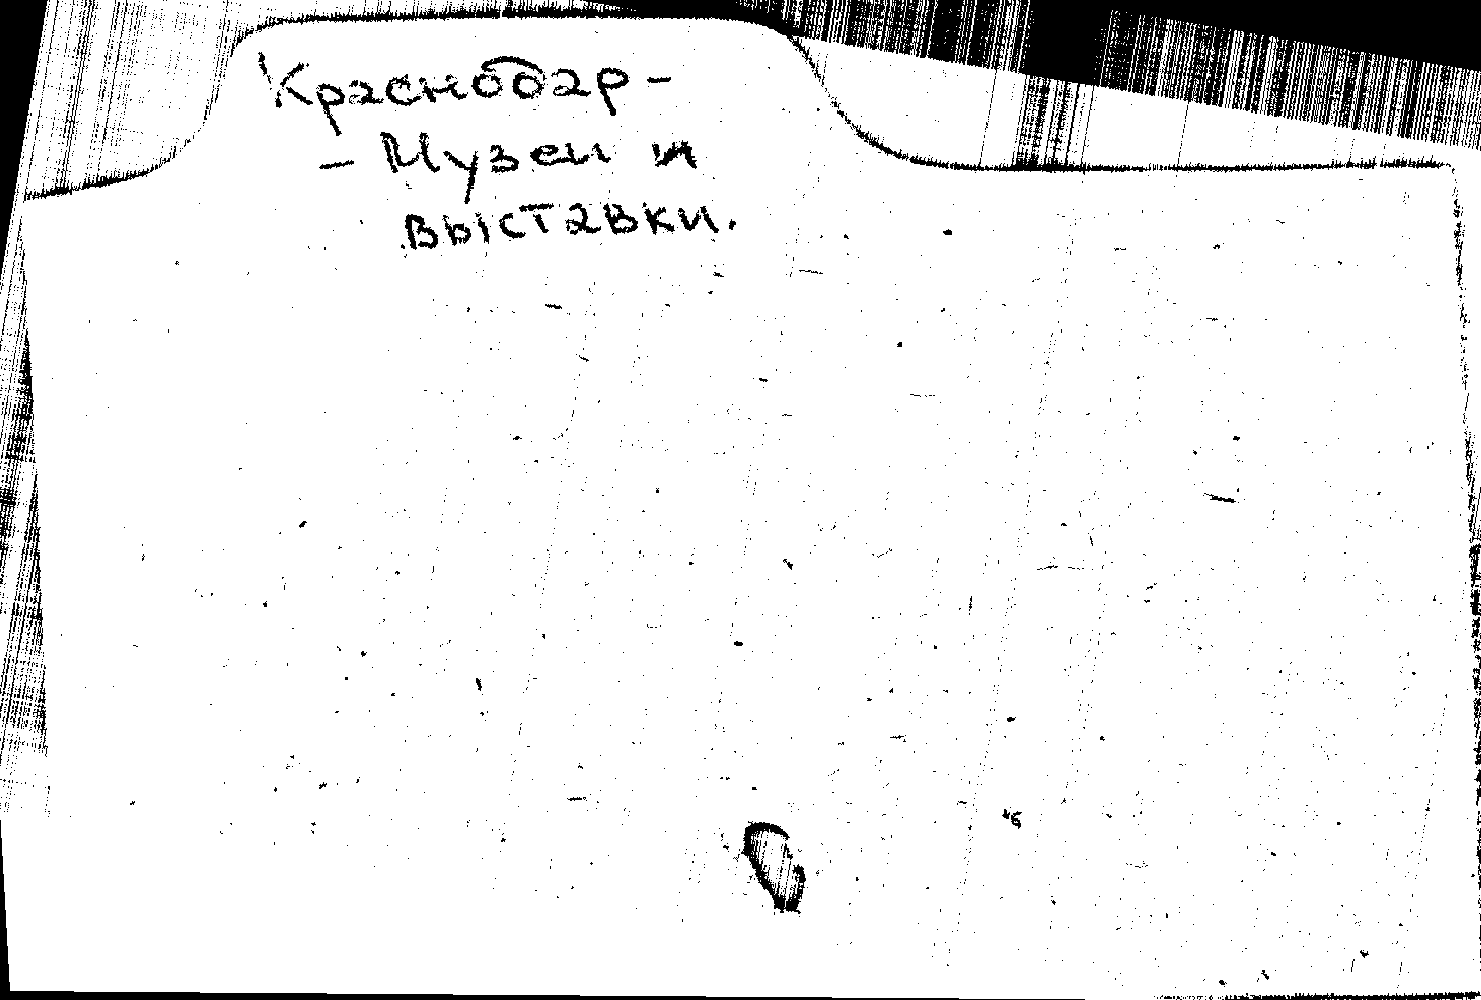 Краснодар -
- Музеи и
выставки.